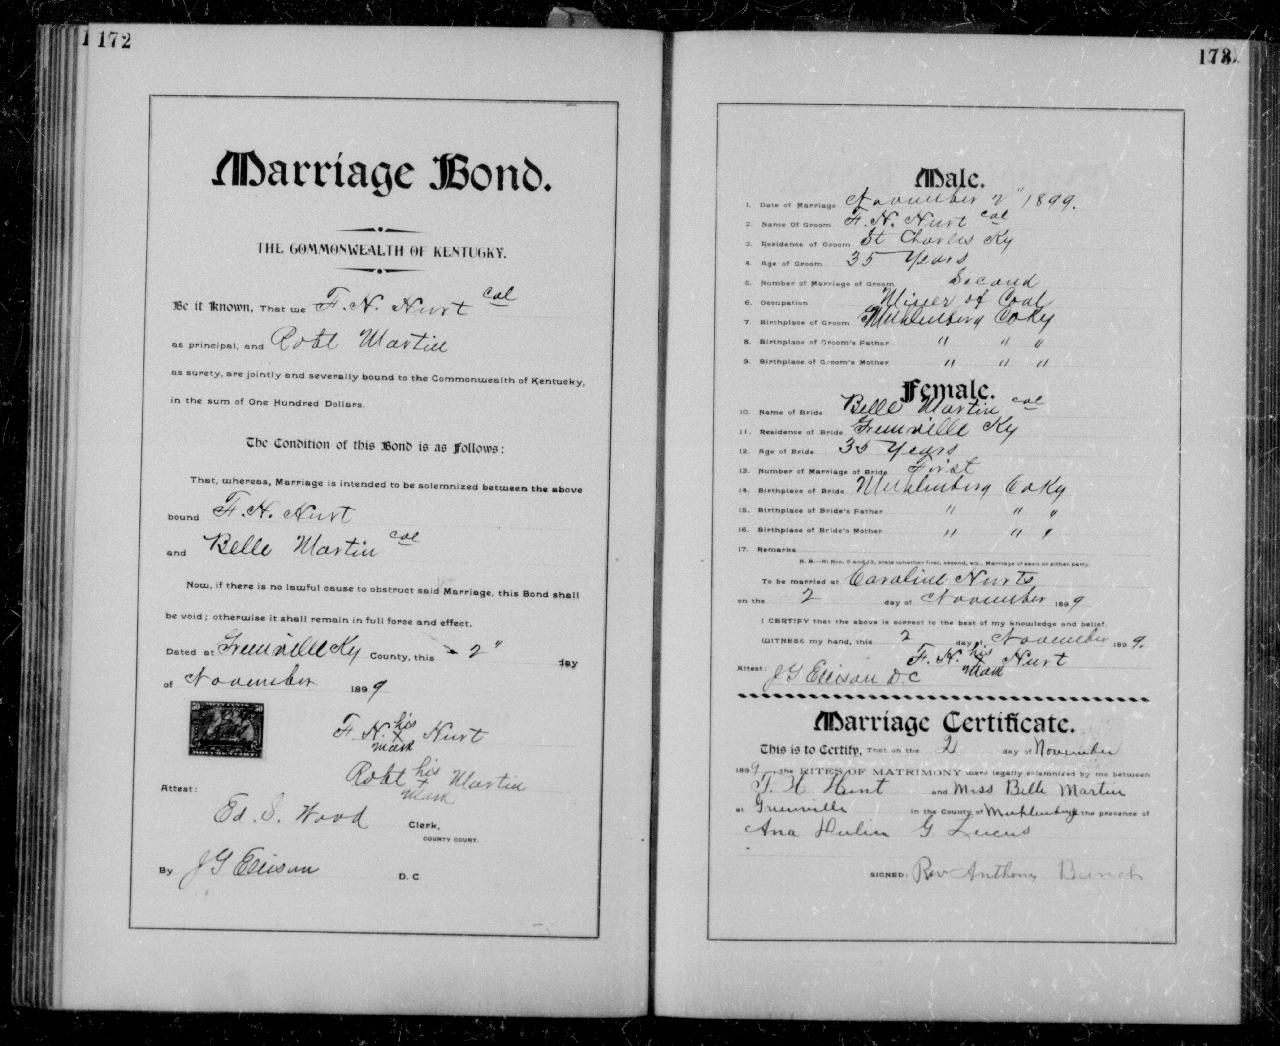 172
Marriage Bond.
THE COMMONWEALTH OF KENTUCKY.
Be it Known, That we F. N. Hurt col
as principal, and Robt Martin
as surety, are jointly and severally bound to the Commonwealth of Kentucky,
in the sum of One Hundred Dollars.
The Condition of this Bond is as Follows:
That, whereas, Marriage is intended to be solemnized between the above
bound F. N. Hurt
and Belle Martin col
Now, if there is no lawful cause to obstruct said Marriage, this Bond shall
be void; otherwise it shall remain in full force and effect.
Dated at Greenville Ky County, this 2" day
of November 1899
F. N. his x mark Hurt
Robt his x mark Martin
Attest:
Ed. S. Wood Clerk,
COUNTY COURT.
By J G Ellison D. C.
173
Male.
1. Date of Marriage November 2" 1899.
2. Name Of Groom F. N. Hurt col
3. Residence of Groom St Charles Ky
4. Age of Groom 35 Years
5. Number of Marriage of Groom Second
6. Occupation Miner of Coal
7. Birthplace of Groom Muhlenberg Co Ky
8. Birthplace of Groom's Father " " "
9. Birthplace of Groom's Mother " " "
Female.
10. Name of Bride Belle Martin col
11. Residence of Bride Greenville Ky
12. Age of Bride 35 Years
13. Number of Marriage of Bride First
14. Birthplace of Bride Muhlenberg Co Ky
15. Birthplace of Bride's Father " " "
16. Birthplace of Bride's Mother " " "
17. Remarks
N. B.—At Nos. 5 and 13, state whether first, second, etc., Marriage of each or either party.
To be married at Caroline Hurts
on the 2 day of November 1899
I CERTIFY that the above is correct to the best of my knowledge and belief.
WITNESS my hand, this 2 day of November 1899.
F. N. his x mark Hurt
Attest: J G Ellison D. C
Marriage Certificate.
This is to Certify, That on the 2 day of November
1899, the RITES OF MATRIMONY were legally solemnized by me between
F. H Hunt and Miss Belle Martin
at Greenville in the County of Muhlenburg the presence of
Ana G Lucus
SIGNED: Rev Anthony Bunch